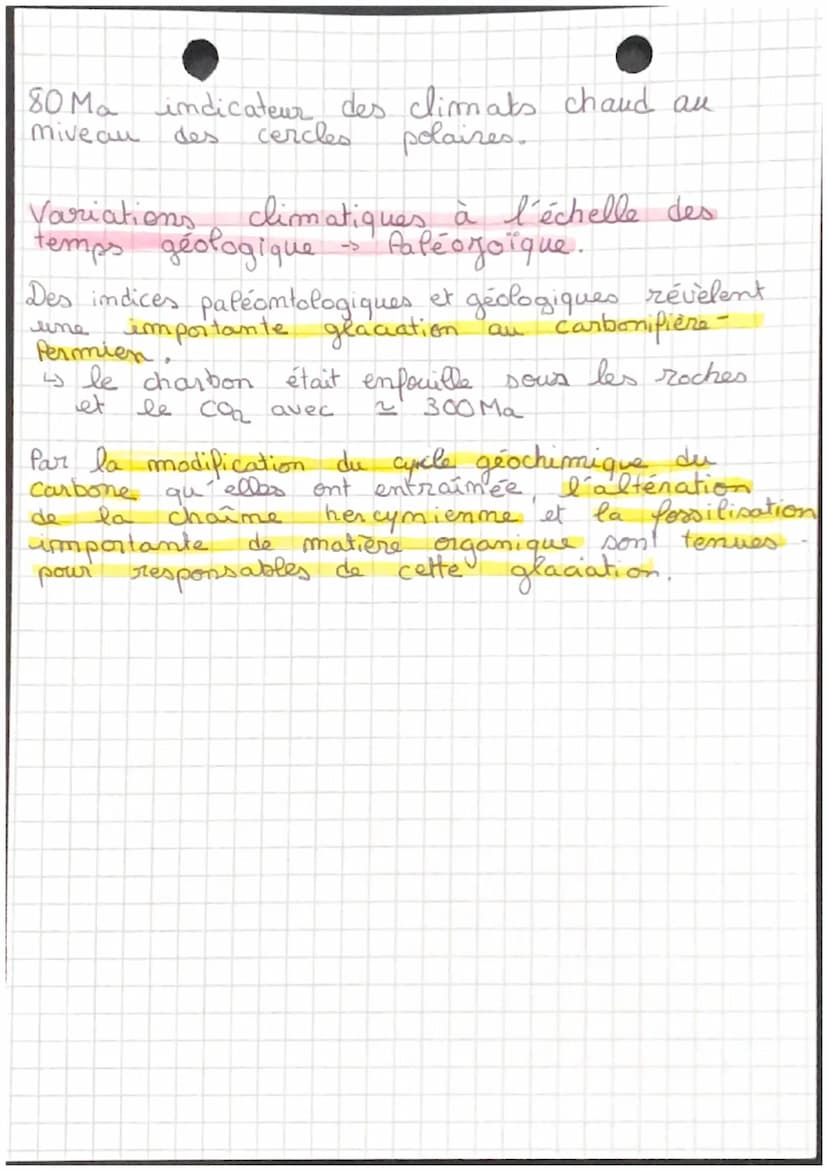 80 Ma indicateur des climats chaud au
niveau des cercles polaires.
Variations climatiques à l'échelle des
temps géologique → Paléozoïque.
Des indices paléontologiques et géologiques révèlent
une importante glaciation au carbonifière-
Permien.
↳ le charbon était enfouille sous les roches
et le CO2 avec ≃ 300 Ma
Par la modification du cycle géochimique du
carbone qu'elles ont entraînée, l'altération
de la chaîne hercynienne et la fossilisation
importante de matière organique sont tenues
pour responsables de cette glaciation.